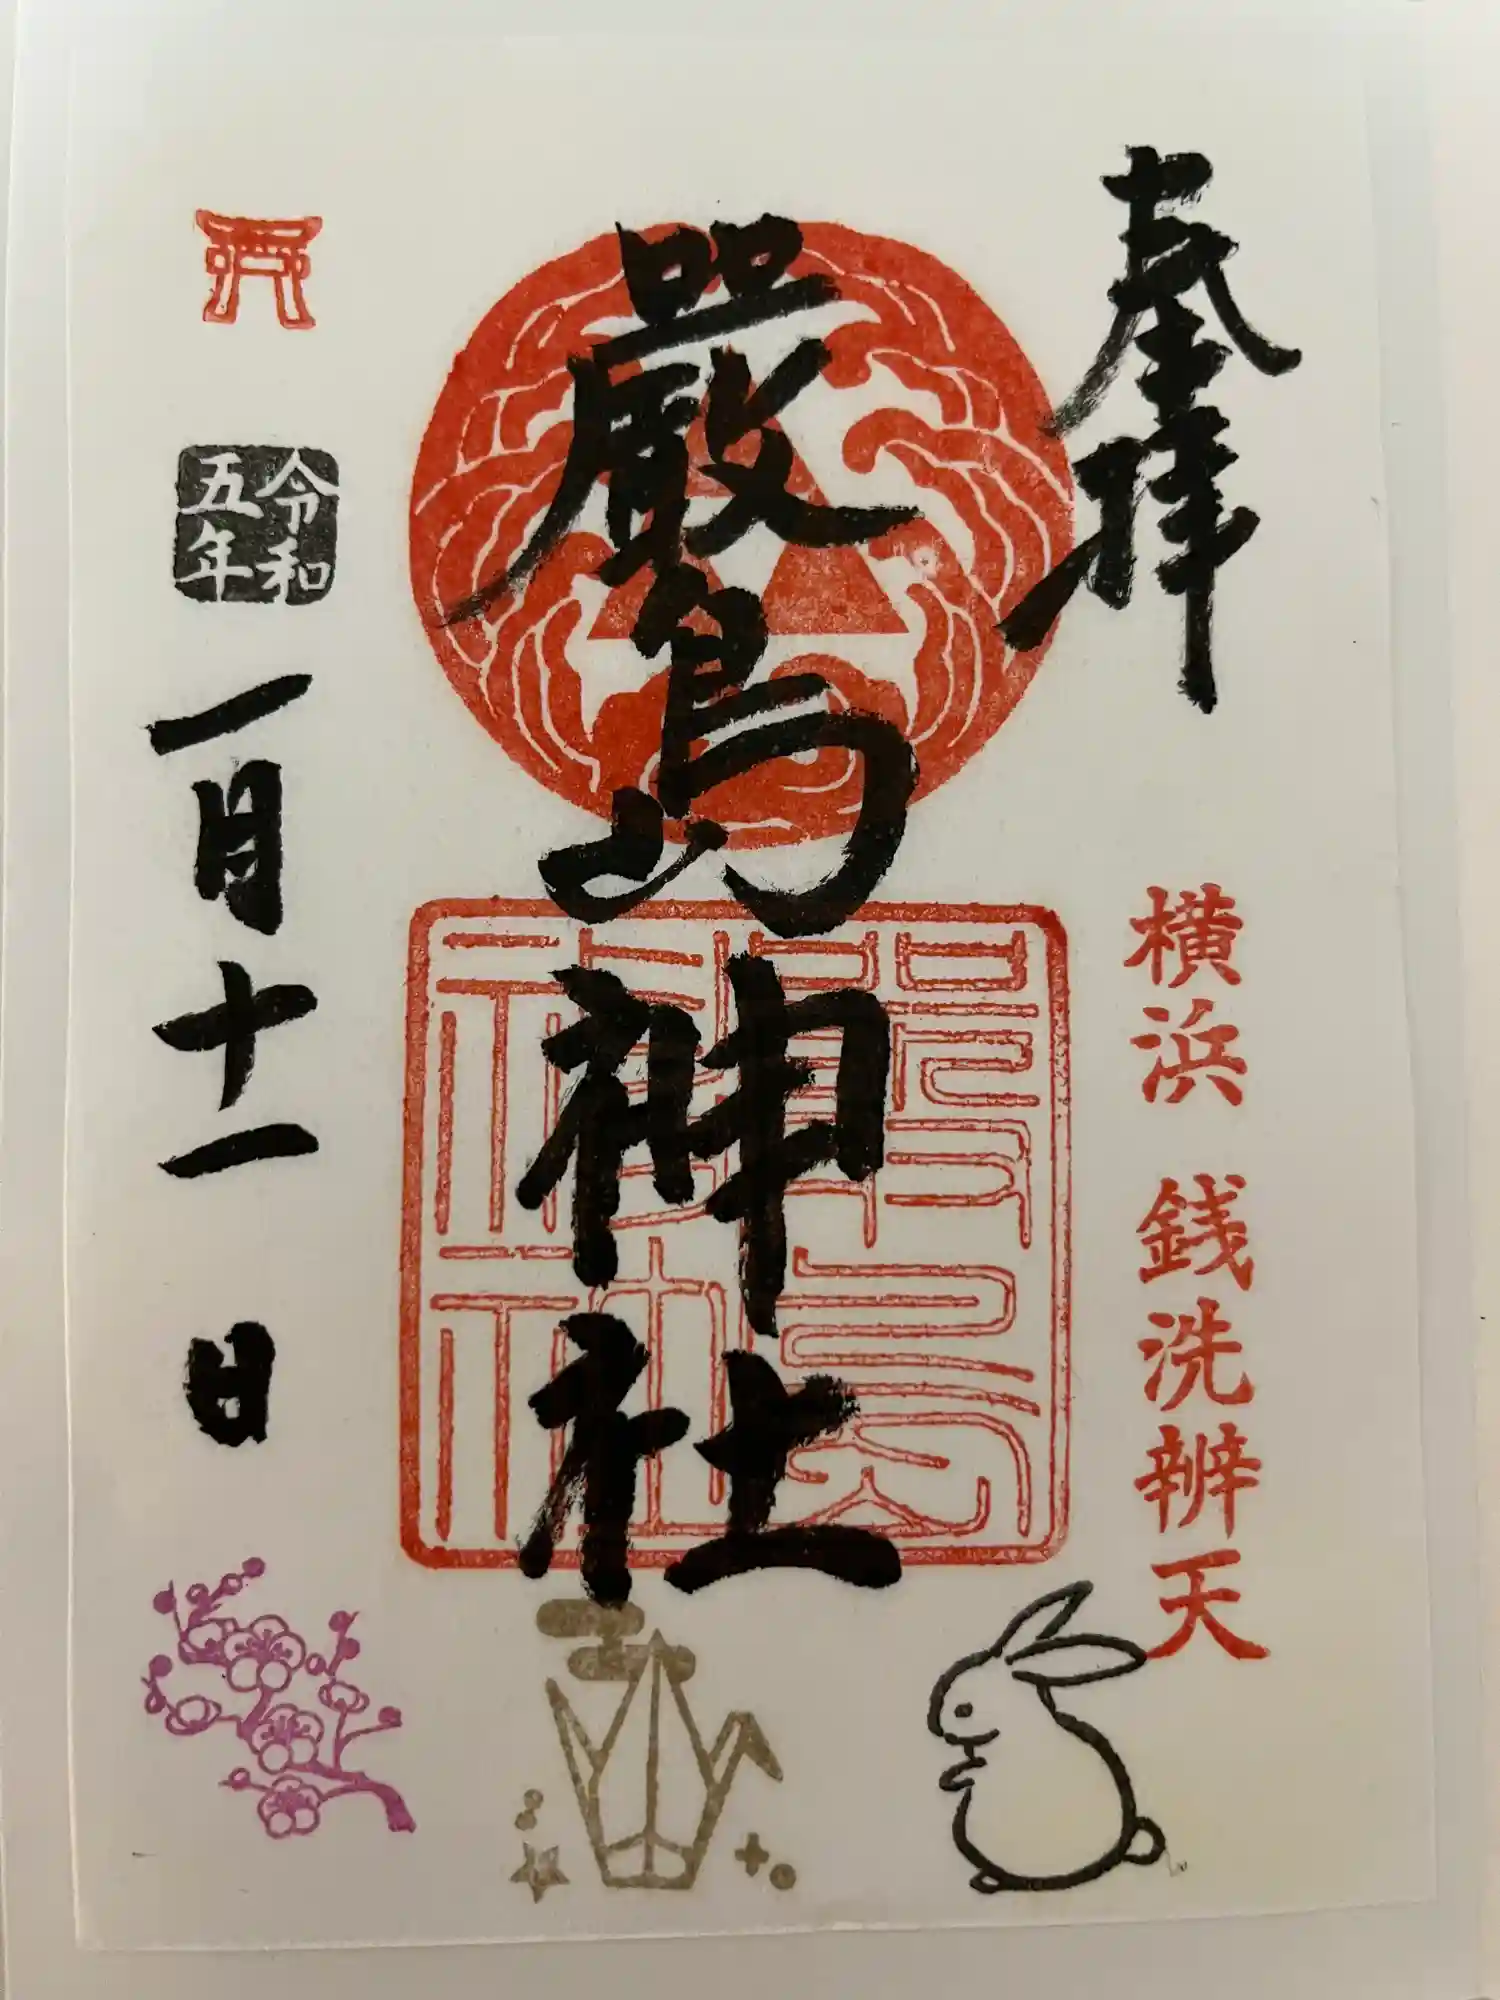 奉拝
横浜 銭洗辨天
嚴島神社
嚴島
神社
令和
五年
一月十一日